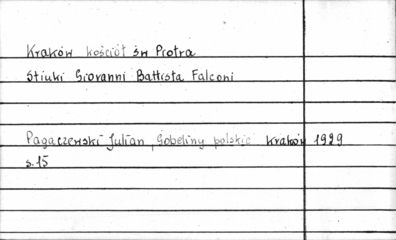 Kraków kościół św Piotra
Stiuki Giovanni Battista Falconi
Pagaczewski Julian, Gobeliny polskie Kraków 1929
s.15